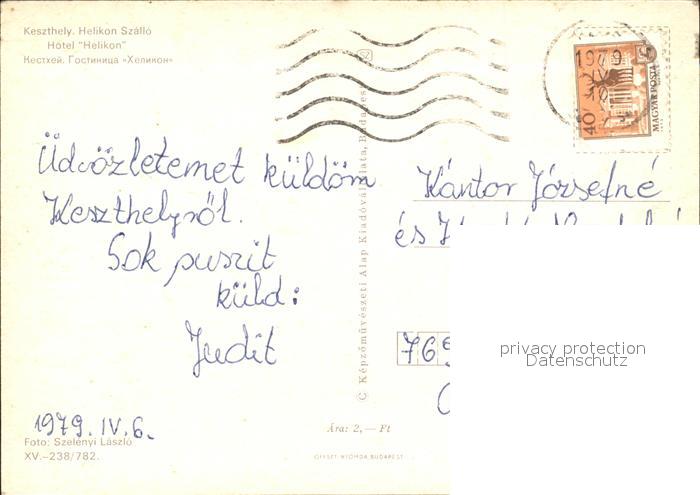 Keszthely. Helikon Szálló
Hotel "Helikon"
Кестхей. Гостиница «Хеликон»
Üdvözletemet küldöm
Keszthelyről.
Sok puszit
küld:
Judit
1979. IV. 6.
Foto: Szelényi László
XV.–238/782.
© Képzőművészeti Alap Kiadóvállalata, Budapest
Ára: 2,— Ft
OFFSET NYOMDA BUDAPEST
1979
40
MAGYAR POSTA
Kántor Józsefné
és
769
privacy protection
Datenschutz